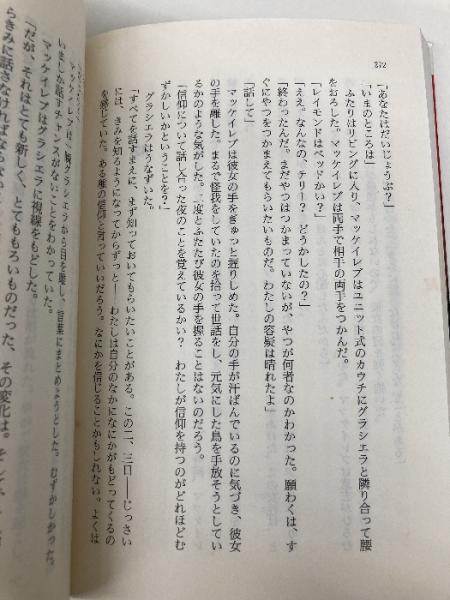 272
「あなたはだいじょうぶ？」
「いまのところは」
ふたりはリビングに入り、マッケイレブはユニット式のカウチにグラシエラと隣り合って腰
をおろした。マッケイレブは両手で相手の両手をつかんだ。
「レイモンドはベッドかい？」
「ええ。なんなの、テリー？　どうかしたの？」
「終わったんだ。まだやつはつかまっていないが、やつが何者なのかわかった。願わくは、す
ぐにやつをつかまえてもらいたいものだ。わたしの容疑は晴れたよ」
「話して」
マッケイレブは彼女の手をぎゅっと握りしめた。自分の手が汗ばんでいるのに気づき、彼女
の手を離した。まるで怪我をしていたのを拾って世話をし、元気にした鳥を手放そうとしてい
るかのような気がした。二度とふたたび彼女の手を握ることはないのだろう。
「信仰について話し合った夜のことを覚えているかい？　わたしが信仰を持つのがどれほどむ
ずかしいかということを？」
グラシエラはうなずいた。
「すべてを話すまえに、まず知っておいてもらいたいことがある。この二、三日――じっさい
には、きみを知るようになってからずっと――わたしは自分のなかになにかがもどってくるの
を感じていた。ある種の信仰と言っていいだろう。なにかを信じることかもしれない。よくは
グラシエラから目を離し、言葉にまとめようとした。むずかしかった。
いましか話すチャンスがないことをわかっていた。
マッケイレブはグラシエラに視線をもどした。
「だが、それはとても新しく、とてももろいものだった、その変化は。そして、
らきみに話さなければならない